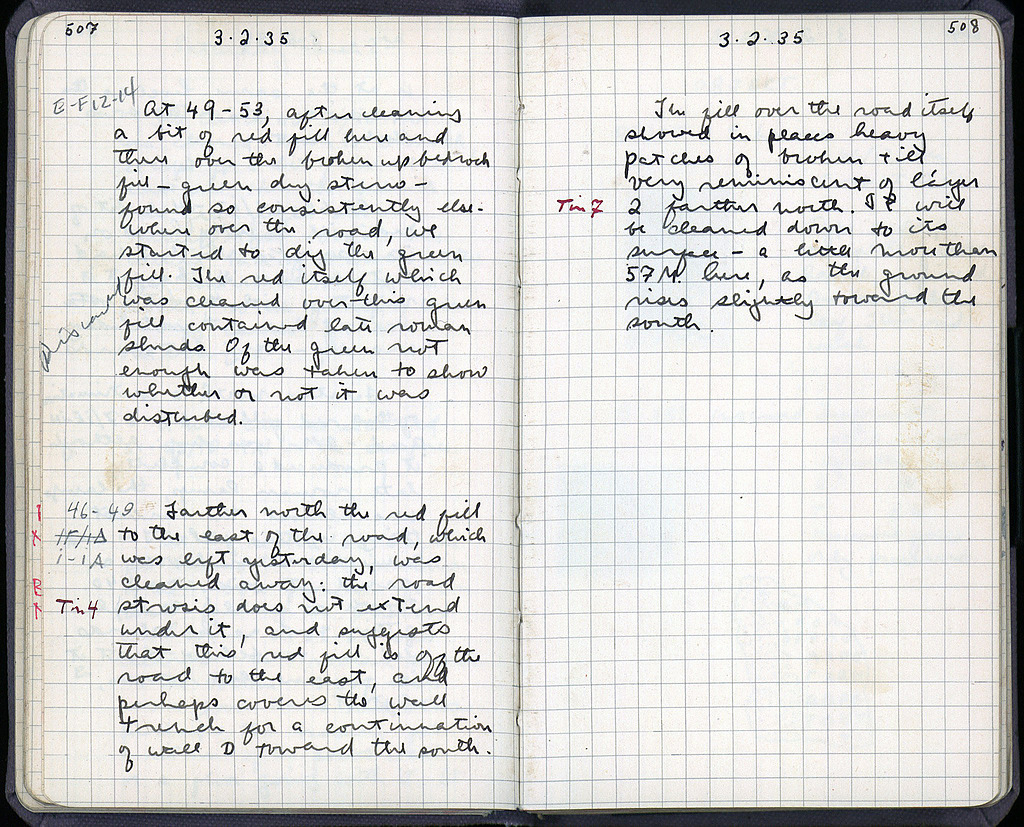 507
3.2.35
E-F 12-14
At 49-53, after cleaning
a bit of red fill here and
there over the broken up bedrock
fill – green dry stereo –
found so consistently else-
where over the road, we
started to dig the green
fill. The red itself which
was cleaned over this green
fill contained late roman
sherds. Of the green not
enough was taken to show
whether or not it was
disturbed.
discard
46-49 Farther north the red fill
to the east of the road, which
i-1A was left yesterday, was
cleaned away: the road
Tin 4 strosis does not extend
under it, and suggests
that this red fill is off the
road to the east, and
perhaps covers the wall
trench for a continuation
of wall D toward the south.
508
3.2.35
The fill over the road itself
showed in places heavy
patches of broken tile
very reminiscent of layer
Tin 7 2 farther north. It will
be cleaned down to its
surface – a little more than
57 M. here, as the ground
rises slightly toward the
south.